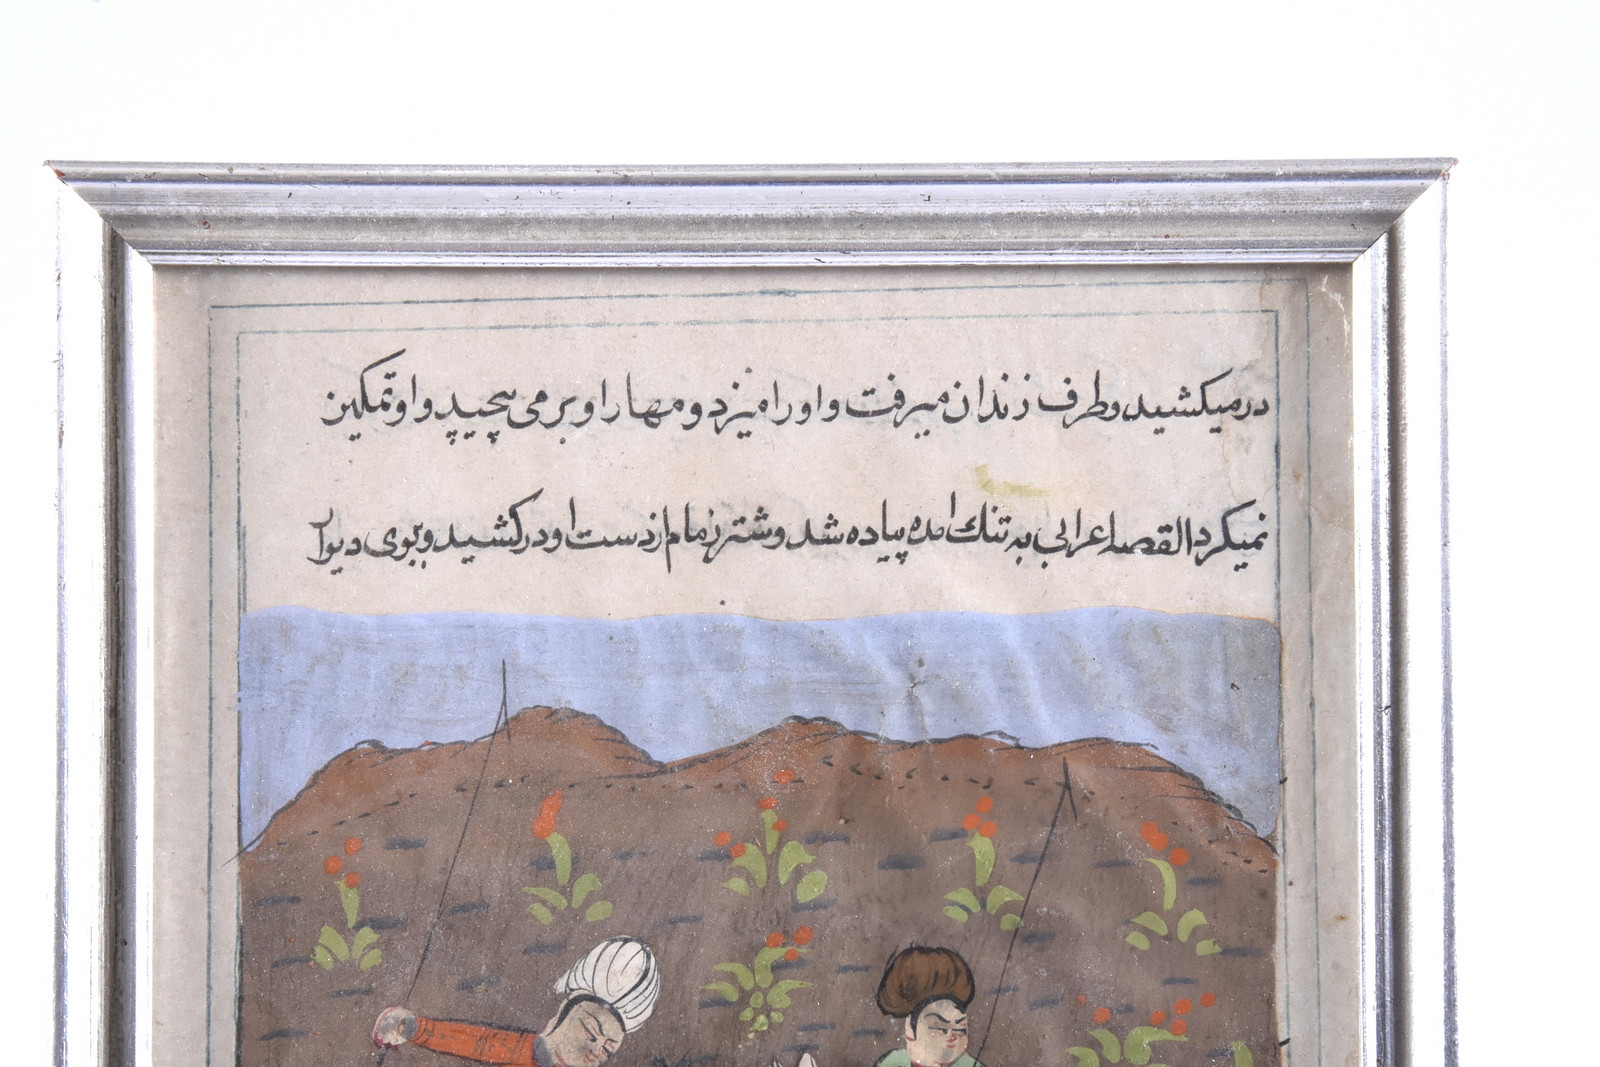 درمیکشید وطرف زندان میرفت واورامیزد ومهار اوبرمی پیچید واوتمکین
نمیکرد القصه اعرابی به تنك امده پیاده شد وشتر زمام ازدست اودرکشید وبوی دیوار